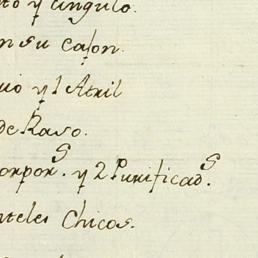 y cingulo.
en su cajon.
y 1 Atril
de Raso.
corpor.s y 2 Purificad.s
manteles Chicos.